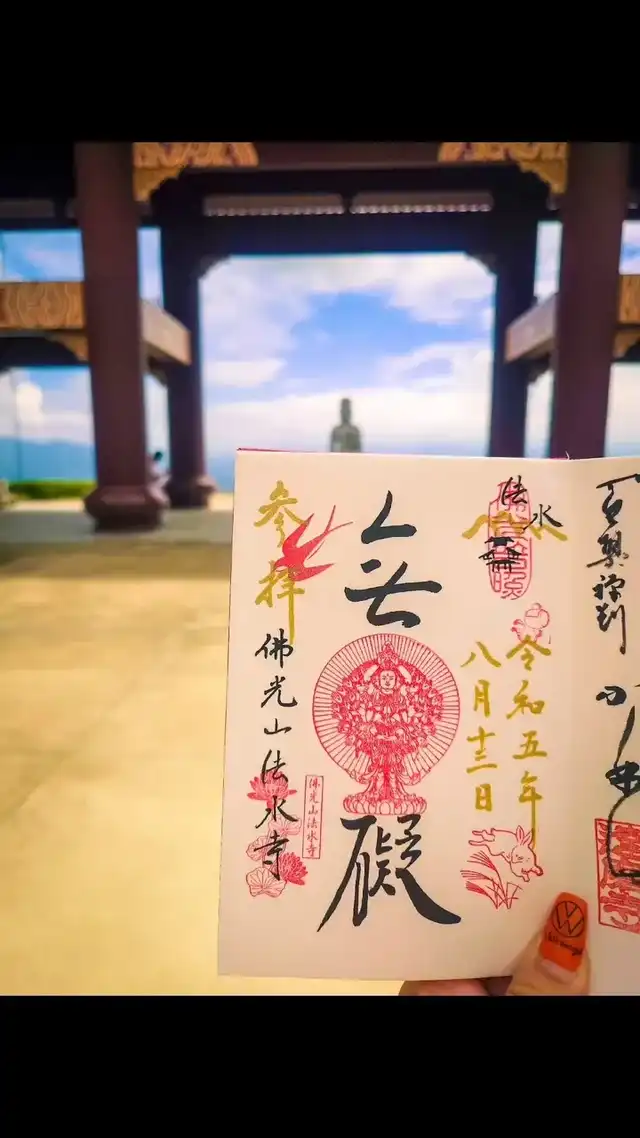 法水
令和五年
八月十三日
無
礙
佛光山法水寺
参拝
佛光山法水寺